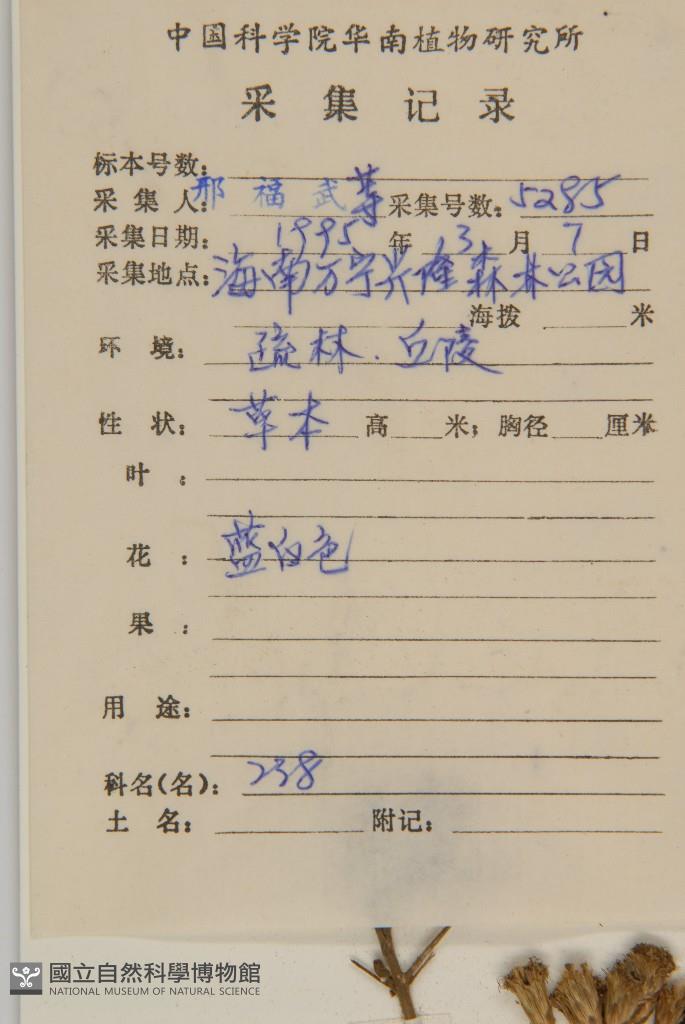 中国科学院华南植物研究所
采集记录
标本号数：
采集人：邢福武等 采集号数：5285
采集日期：1995年 3月7日
采集地点：海南万宁兴隆森林公园
海拨 米
环境：疏林.丘陵
性状：草本 高 米；胸径 厘米
叶：
花：蓝白色
果：
用途：
科名(名)：238
土名： 附记：
國立自然科學博物館
NATIONAL MUSEUM OF NATURAL SCIENCE